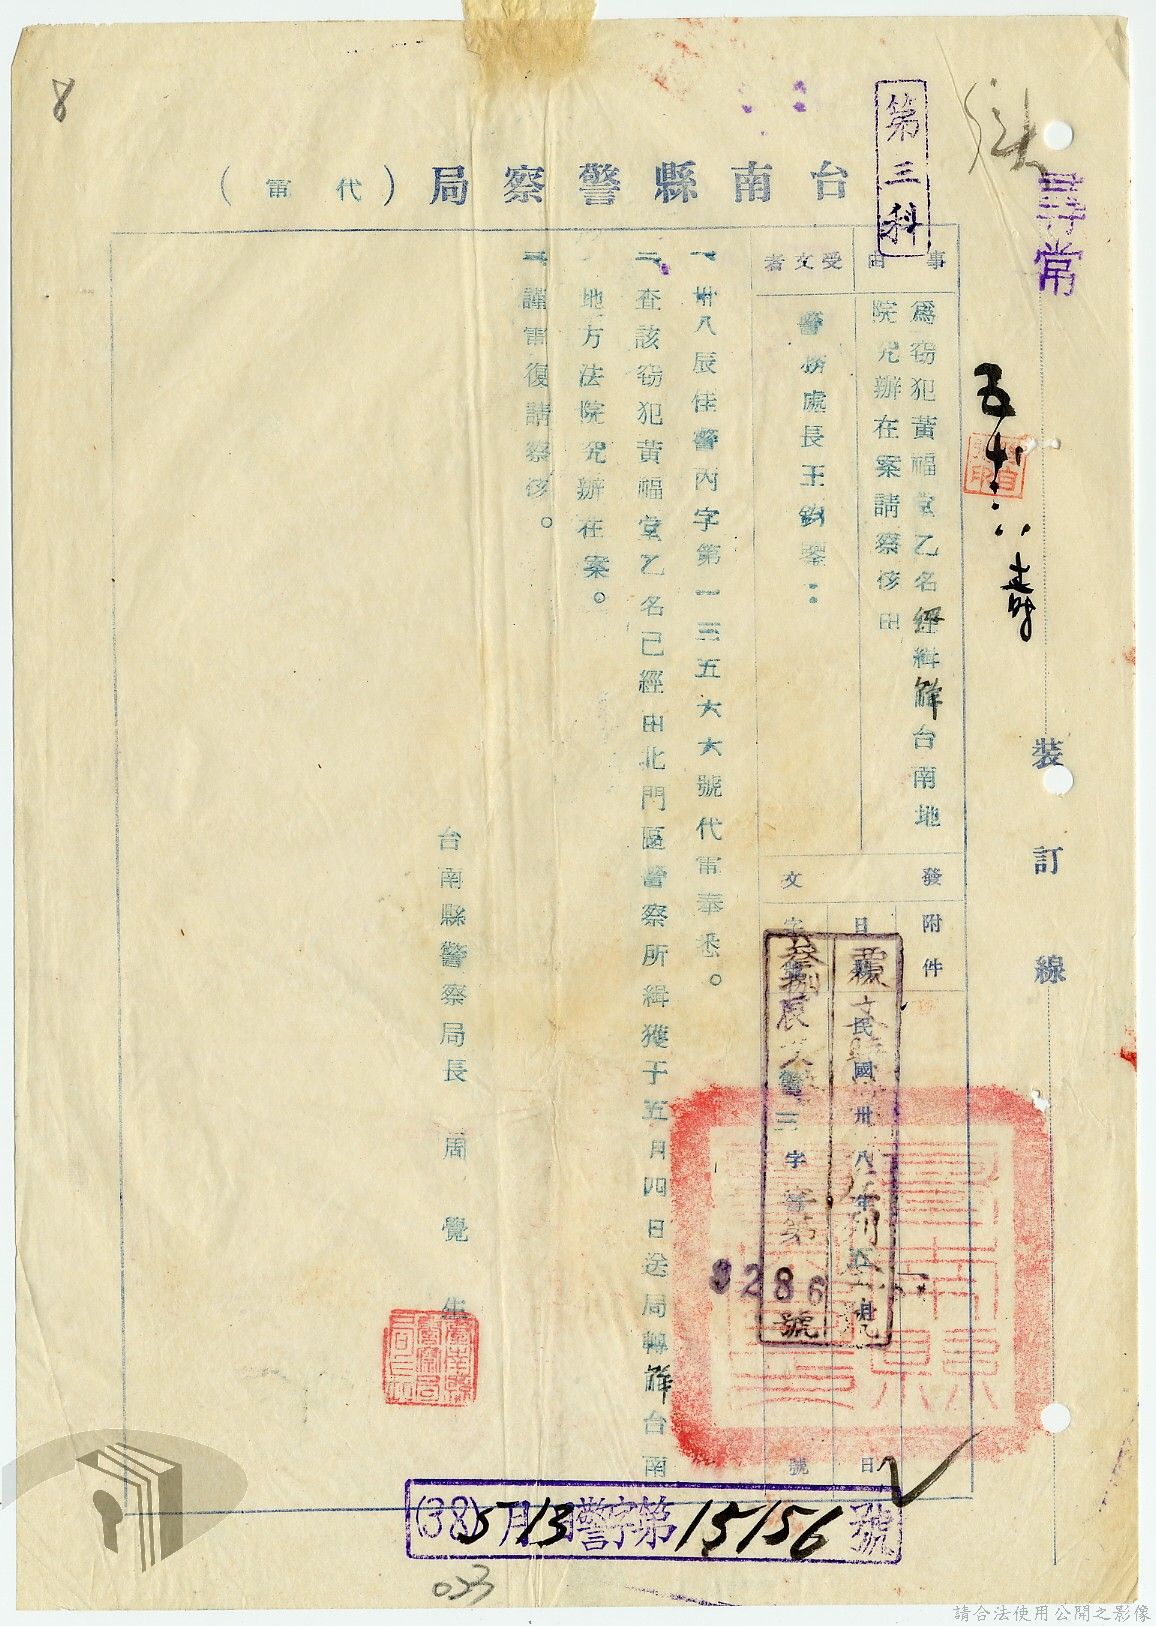 8
第三科
尋常
台南縣警察局（代電）
事由
為窃犯黃福堂乙名經緝解台南地
院究辦在案請察核由
受文者
警務處長王鈞鑒：
發文
附件
日
民國卅八年五月
日
警三字第
9286
號
覆文請
叁捌辰
一、卅八辰佳警丙字第一三五六六號代電奉悉。
二、查該窃犯黃福堂乙名已經由北門區警察所緝獲于五月四日送局轉解台南
地方法院究辦在案。
三、謹電復請察核。
台南縣警察局長 周覺生
裝訂線
(38)5月13日警字第15156號
033
請合法使用公開之影像